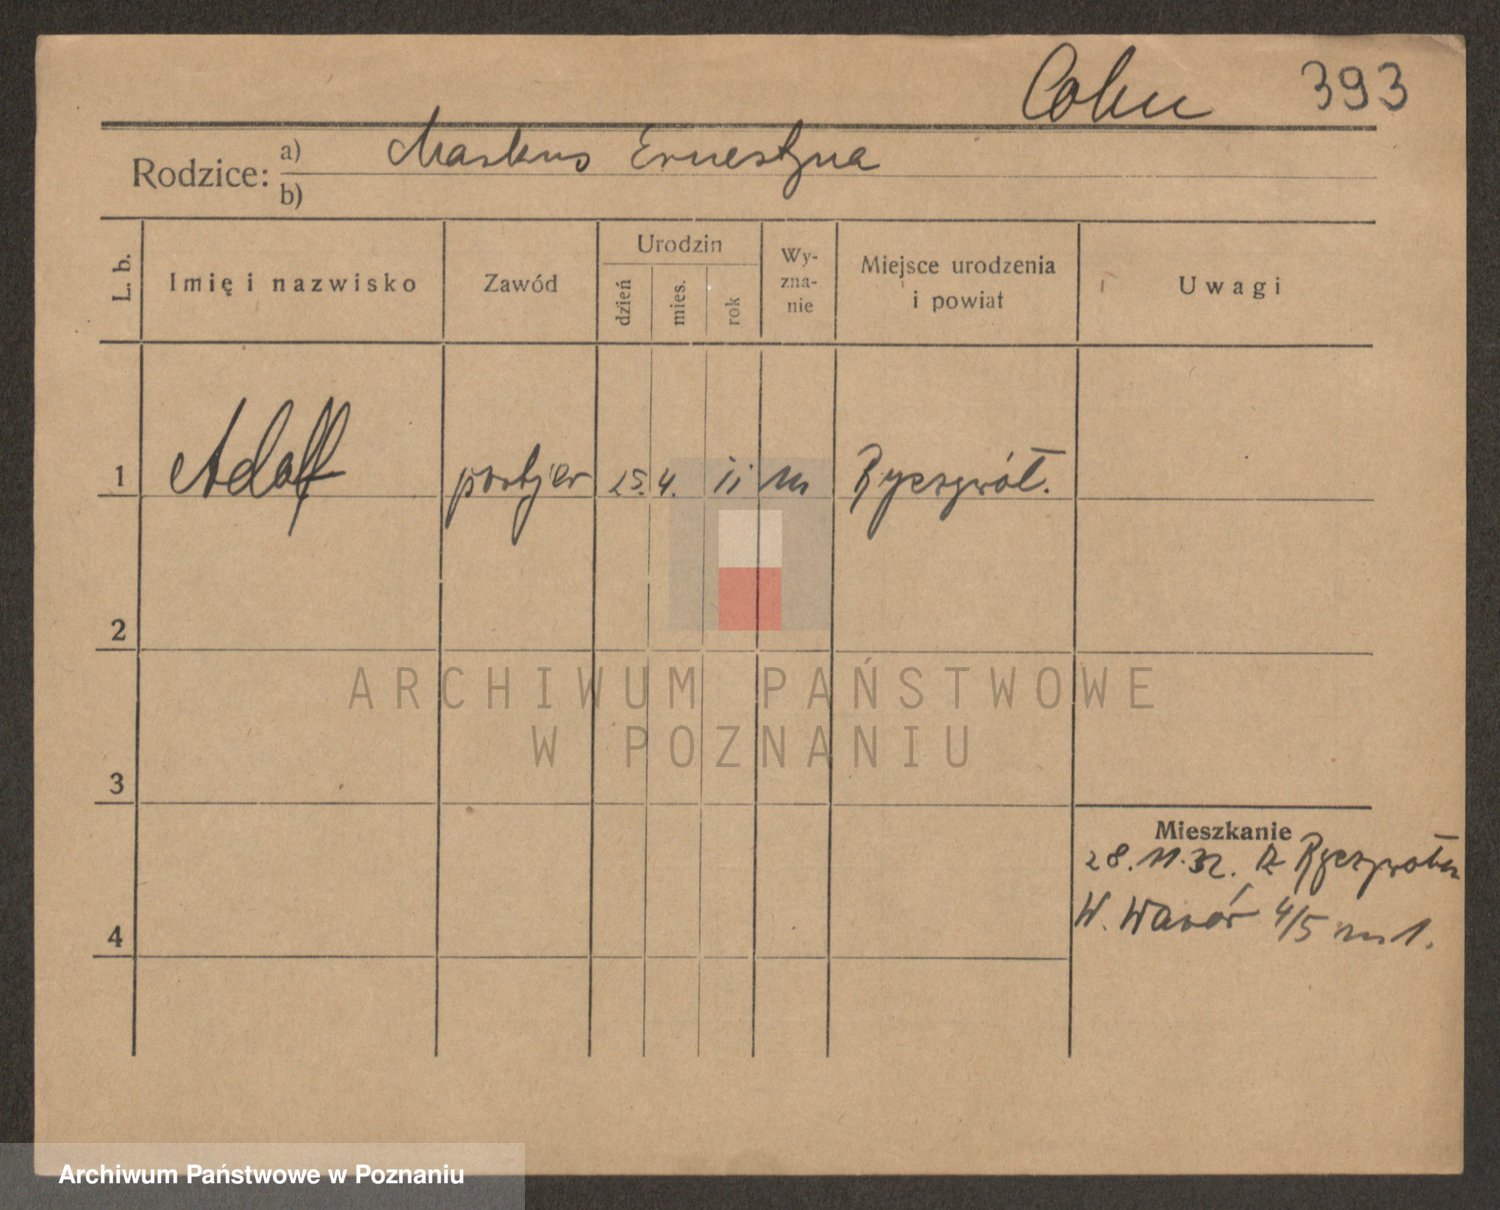 Cohn 393
Rodzice: a) Markus Ernestyna
b)
L. b. Imię i nazwisko Zawód Urodzin dzień mies. rok Wy-zna-nie Miejsce urodzenia i powiat Uwagi
1 Adolf portjer 25. 4. 11 m Ryczywół.
2
ARCHIWUM PAŃSTWOWE
W POZNANIU
3
Mieszkanie
28.11.32. z Ryczywołu
4 W. Wawór 4/5 m 1.
Archiwum Państwowe w Poznaniu